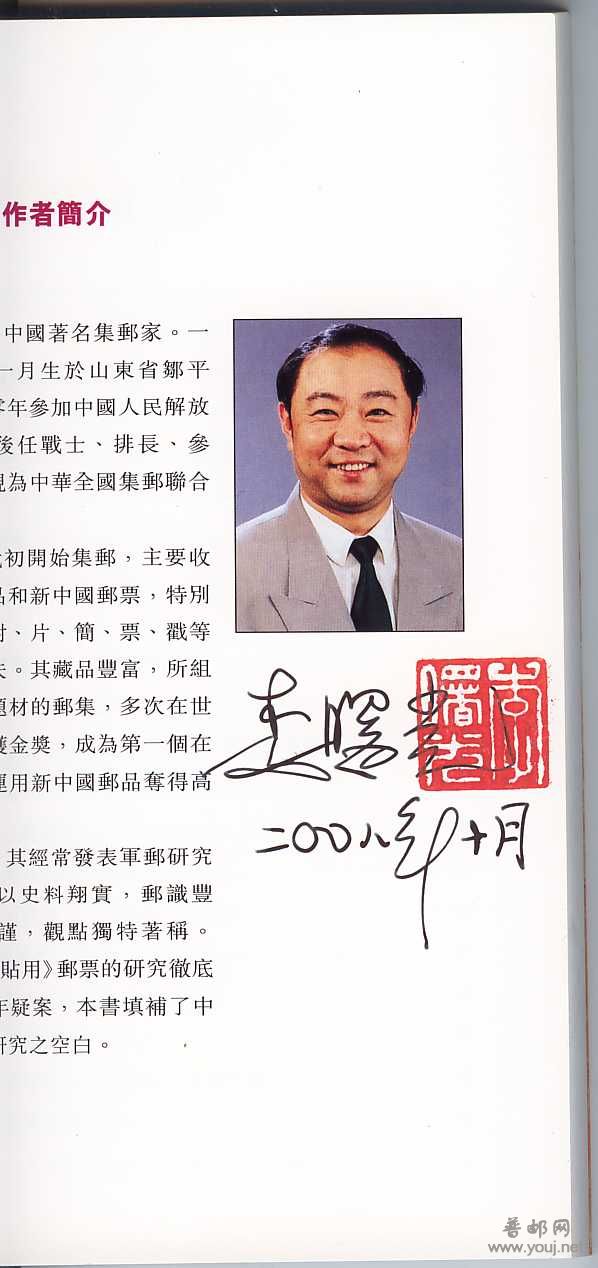 作者簡介
中國著名集郵家。一
一月生於山東省鄒平
年參加中國人民解放
後任戰士、排長、參
現為中華全國集郵聯合
初開始集郵，主要收
品和新中國郵票，特別
封、片、簡、票、戳等
。其藏品豐富，所組
題材的郵集，多次在世
獲金獎，成為第一個在
運用新中國郵品奪得高
其經常發表軍郵研究
以史料翔實，郵識豐
謹，觀點獨特著稱。
貼用》郵票的研究徹底
年疑案，本書填補了中
研究之空白。
李曙光
二00八年十月
普邮网
www.youj.net